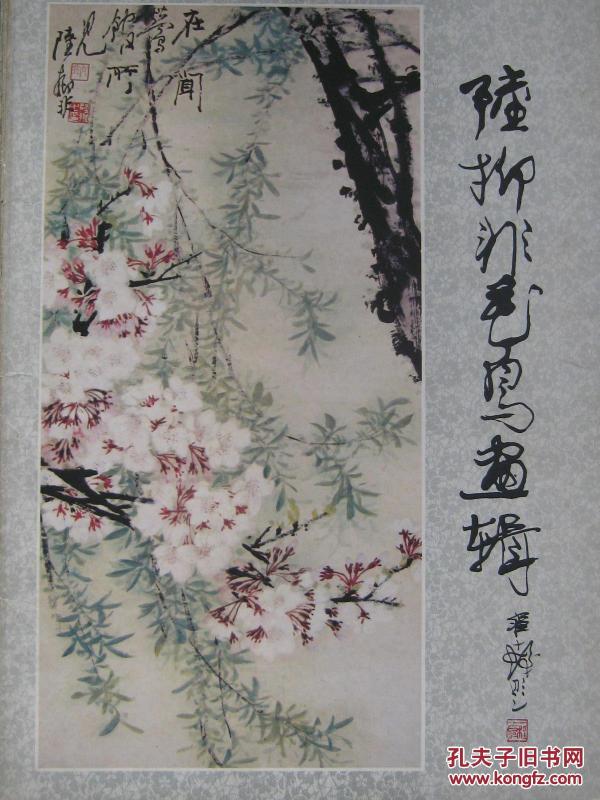 陸抑非花鳥畫輯
程十髮
在聞
鶯
館所
見
陸抑非
孔夫子旧书网
www.kongfz.com